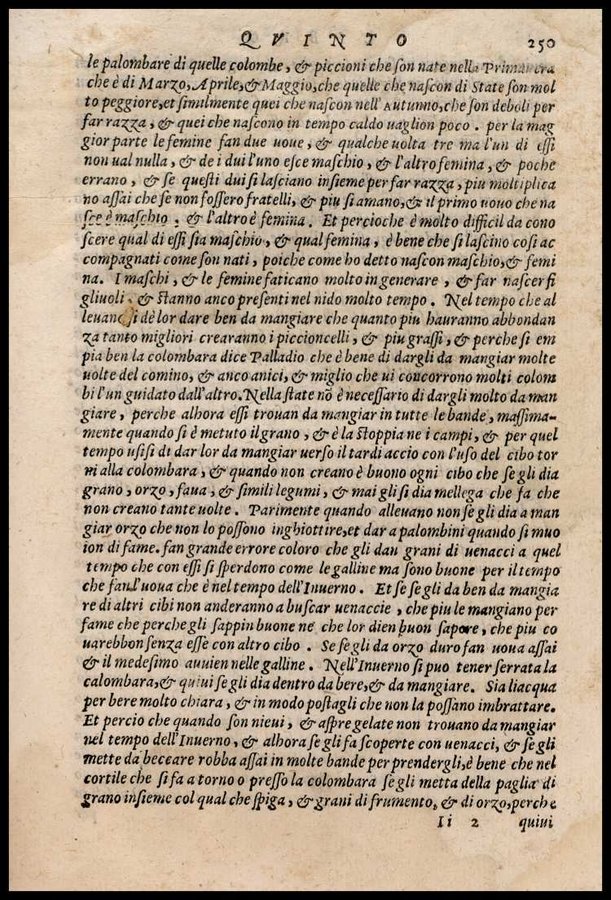 QVINTO 250
le palombare di quelle colombe, & piccioni che son nate nella Primauera
che è di Marzo, Aprile, & Maggio, che quelle che nascon di State son mol
to peggiore, et similmente quei che nascon nell' Autunno, che son deboli per
far razza, & quei che nascono in tempo caldo uaglion poco. per la mag
gior parte le femine fan due uoue, & qualche uolta tre ma l'un di essi
non ual nulla, & de i dui l'uno esce maschio, & l'altro femina, & poche
errano, & se questi dui si lasciano insieme per far razza, piu moltiplica
no assai che se non fossero fratelli, & piu si amano, & il primo uouo che na
sce è maschio, & l'altro è femina. Et percioche è molto difficil da cono
scere qual di essi sia maschio, & qual femina, è bene che si lascino cosi ac
compagnati come son nati, poiche come ho detto nascon maschio, & femi
na. I maschi, & le femine faticano molto in generare, & far nascer fi
gliuoli, & stanno anco presenti nel nido molto tempo. Nel tempo che al
leuano si dè lor dare ben da mangiare che quanto piu hauranno abbondan
za tanto migliori crearanno i piccioncelli, & piu grassi, & perche si em
pia ben la colombara dice Palladio che è bene di dargli da mangiar molte
uolte del comino, & anco anici, & miglio che ui concorrono molti colom
bi l'un guidato dall'altro. Nella state nõ è necessario di dargli molto da man
giare, perche alhora essi trouan da mangiar in tutte le bande, massima-
mente quando si è metuto il grano, & è la stoppia ne i campi, & per quel
tempo usisi di dar lor da mangiar uerso il tardi accio con l'uso del cibo tor
ni alla colombara, & quando non creano è buono ogni cibo che se gli dia
grano, orzo, faua, & simili legumi, & mai gli si dia mellega che fa che
non creano tante uolte. Parimente quando alleuano non se gli dia a man
giar orzo che non lo possono inghiottire, et dar a palombini quando si muo
ion di fame. fan grande errore coloro che gli dan grani di uenacci a quel
tempo che con essi si sperdono come le galline ma sono buone per il tempo
che fan l'uoua che è nel tempo dell'Inuerno. Et se se gli da ben da mangia
re di altri cibi non anderanno a buscar uenaccie, che piu le mangiano per
fame che perche gli sappin buone ne che lor dien buon sapore, che piu co
uarebbon senza esse con altro cibo. Se se gli da orzo duro fan uoua assai
& il medesimo auuien nelle galline. Nell'Inuerno si puo tener serrata la
calombara, & quiui se gli dia dentro da bere, & da mangiare. Sia liacqua
per bere molto chiara, & in modo postagli che non la possano imbrattare.
Et percio che quando son nieui, & aspre gelate non trouano da mangiar
nel tempo dell'Inuerno, & alhora se gli fa scoperte con uenacci, & se gli
mette da beccare robba assai in molte bande per prendergli, è bene che nel
cortile che si fa a torno o presso la colombara se gli metta della paglia di
grano insieme col qual che spiga, & grani di frumento, & di orzo, perche
Ii 2 quiui